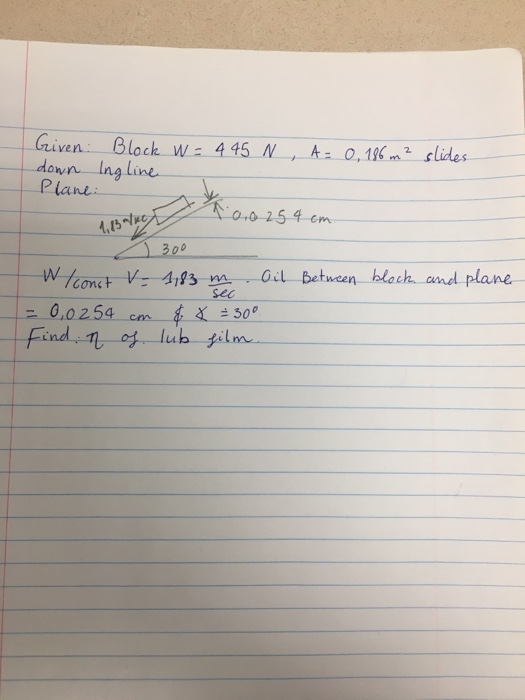 Given: Block W = 445 N, A = 0,186 m² slides
down Ingline
Plane:
1,83 m/sec
0,0254 cm
30°
W/const V = 1,83 m/sec. Oil Between block and plane
= 0,0254 cm & ∡ = 30°
Find η of lub film.